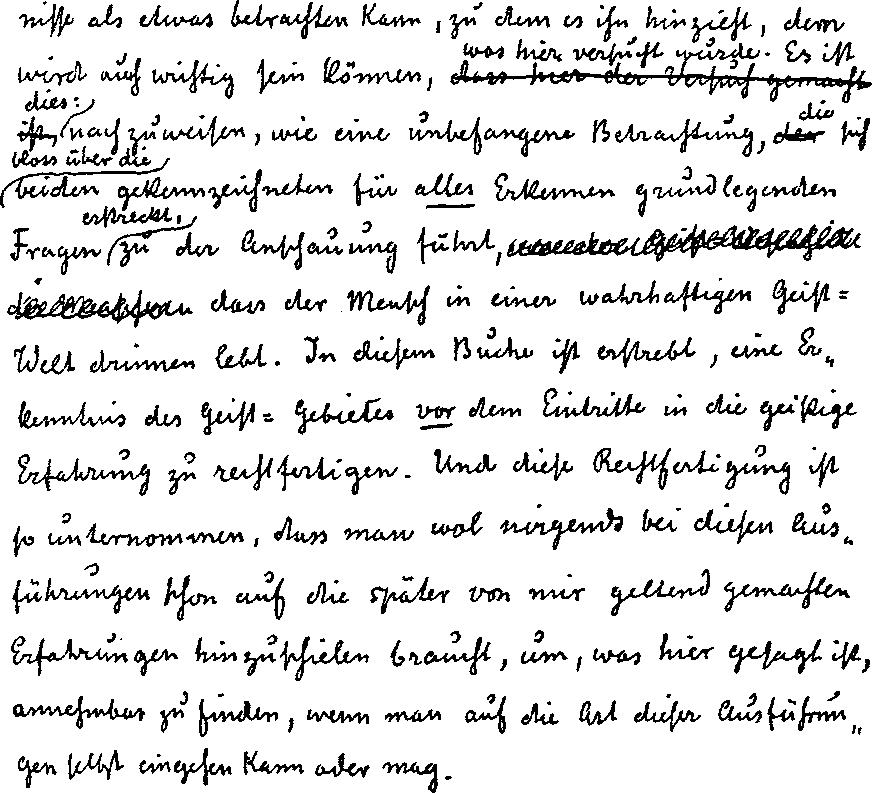 nisse als etwas betrachten kann, zu dem es ihn hinzieht, dem
was hier versucht wurde. Es ist
wird auch wichtig sein können, dass hier der Versuch gemacht
dies:
ist, nachzuweisen, wie eine unbefangene Betrachtung, der sich
die
bloss über die
beiden gekennzeichneten für alles Erkennen grundlegenden
erstreckt,
Fragen zu der Anschauung führt,
dass der Mensch in einer wahrhaftigen Geist=
Welt drinnen lebt. In diesem Buche ist erstrebt, eine Er„
kenntnis des Geist=Gebietes vor dem Eintritte in die geistige
Erfahrung zu rechtfertigen. Und diese Rechtfertigung ist
so unternommen, dass man wol nirgends bei diesen Aus„
führungen schon auf die später von mir geltend gemachten
Erfahrungen hinzuschielen braucht, um, was hier gesagt ist,
annehmbar zu finden, wenn man auf die Art dieser Ausführun„
gen selbst eingehen kann oder mag.